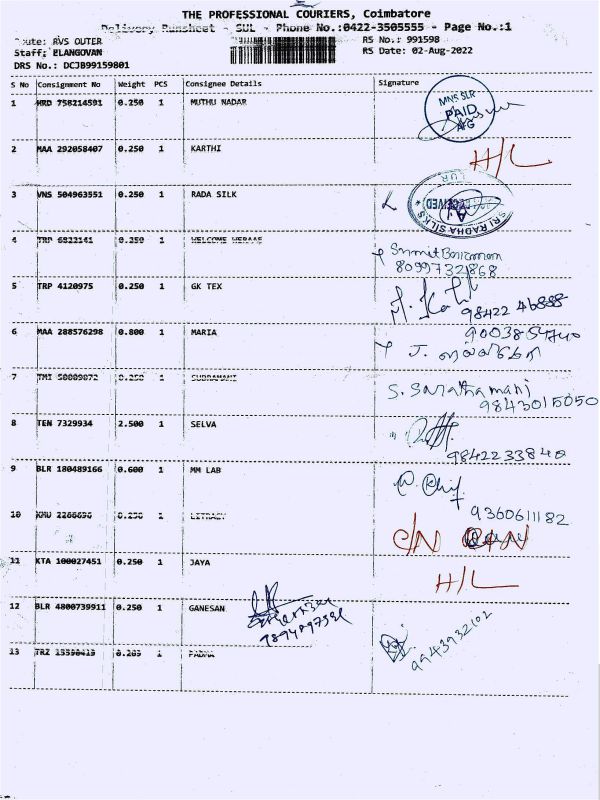 THE PROFESSIONAL COURIERS, Coimbatore
Delivery Runsheet - SUL - Phone No.:0422-3505555 - Page No.:1
Route: RVS OUTER
RS No.: 991598
Staff: ELANGOVAN
RS Date: 02-Aug-2022
DRS No.: DCJB99159801
S No Consignment No Weight PCS Consignee Details Signature
1 HRD 758214591 0.250 1 MUTHU NADAR
MNS SLR
PAID
2 MAA 292058407 0.250 1 KARTHI H/L
3 VNS 504963551 0.250 1 RADA SILK
SRI RADHA SILKS
RECEIVED
4 TRP 0.250 1 WELCOME
8099732868
5 TRP 4120975 0.250 1 GK TEX
98422 46888
6 MAA 288576298 0.800 1 MARIA
9003854740
J.
7 TMI 0.250 1 SUBRAMANI
S. Sarathamani
9843015050
8 TEN 7329934 2.500 1 SELVA
9842233840
9 BLR 180489166 0.600 1 MM LAB
9360611182
10 0.250 1 LITRACY
C/N
11 KTA 100027451 0.250 1 JAYA H/L
12 BLR 4800739911 0.250 1 GANESAN
9943932102
13 TRZ 1 PADMA